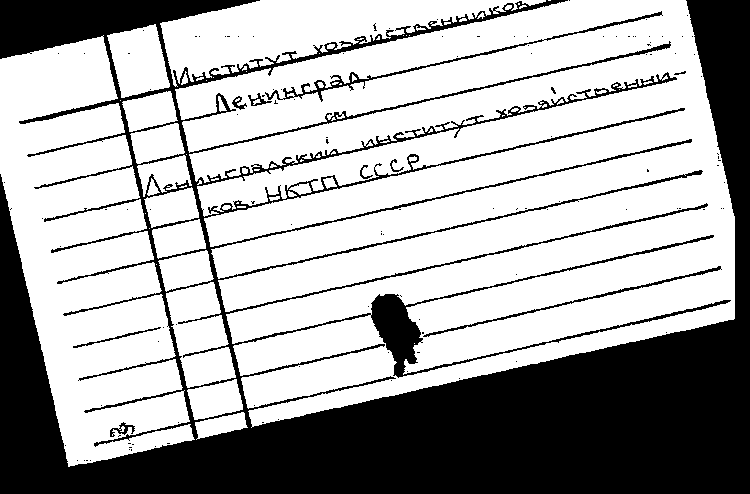 Институт хозяйственников.
Ленинград.
см.
Ленинградский институт хозяйственни-
ков. НКТП СССР.